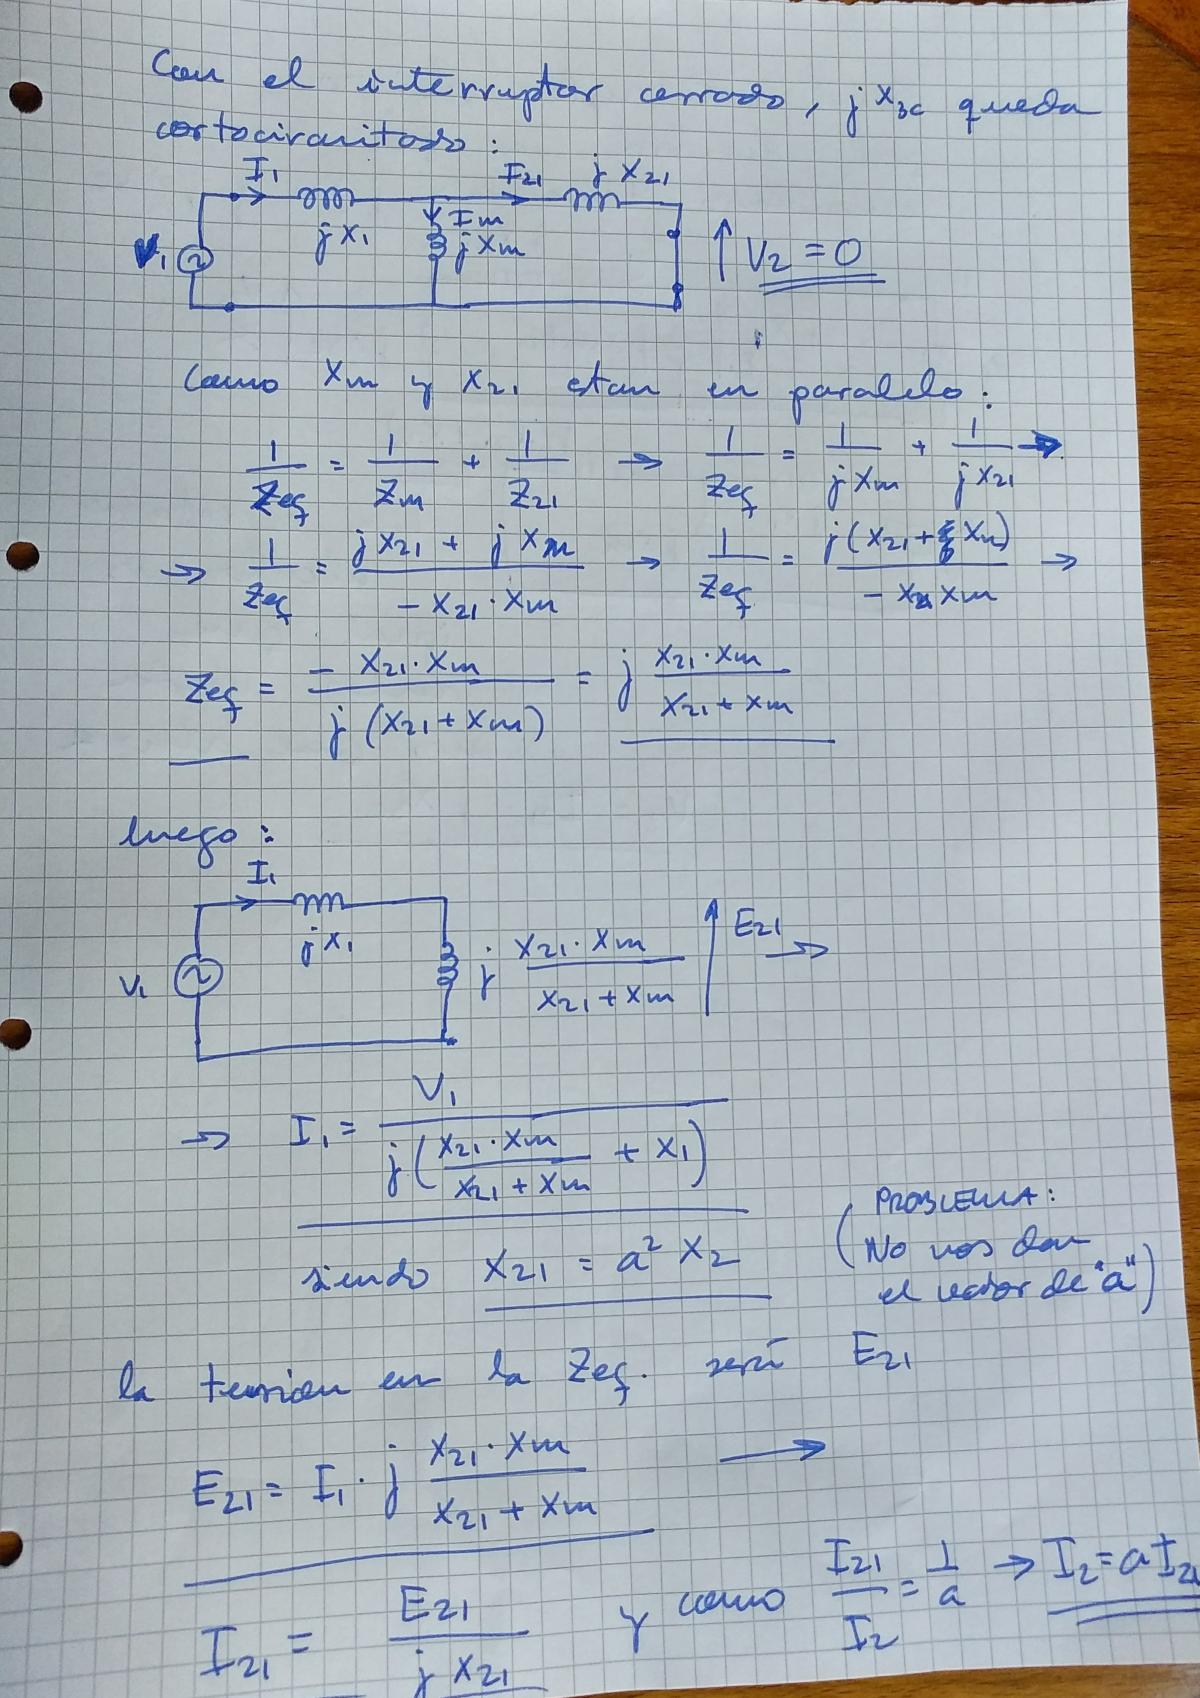 Con el interruptor cerrado, j X3c queda
cortocircuitado :
I1 I21 j X21
j X1 Im j Xm
V1 V2 = 0
Como Xm y X21 estan en paralelo :
1/Zeq = 1/Zm + 1/Z21 → 1/Zeq = 1/(j Xm) + 1/(j X21) →
→ 1/Zeq = (j X21 + j Xm)/(- X21 · Xm) → 1/Zeq = j (X21 + Xm)/(- X21 Xm) →
Zeq = (- X21 · Xm)/(j (X21 + Xm)) = j (X21 · Xm)/(X21 + Xm)
luego :
I1
j X1
V1 j (X21 · Xm)/(X21 + Xm) E21 →
→ I1 = V1/(j ((X21 · Xm)/(X21 + Xm) + X1))
siendo X21 = a² X2
(PROBLEMA:
No nos dan
el valor de "a")
la tension en la Zeq. será E21
E21 = I1 · j (X21 · Xm)/(X21 + Xm) →
I21 = E21/(j X21) y como I21/I2 = 1/a → I2 = a I21